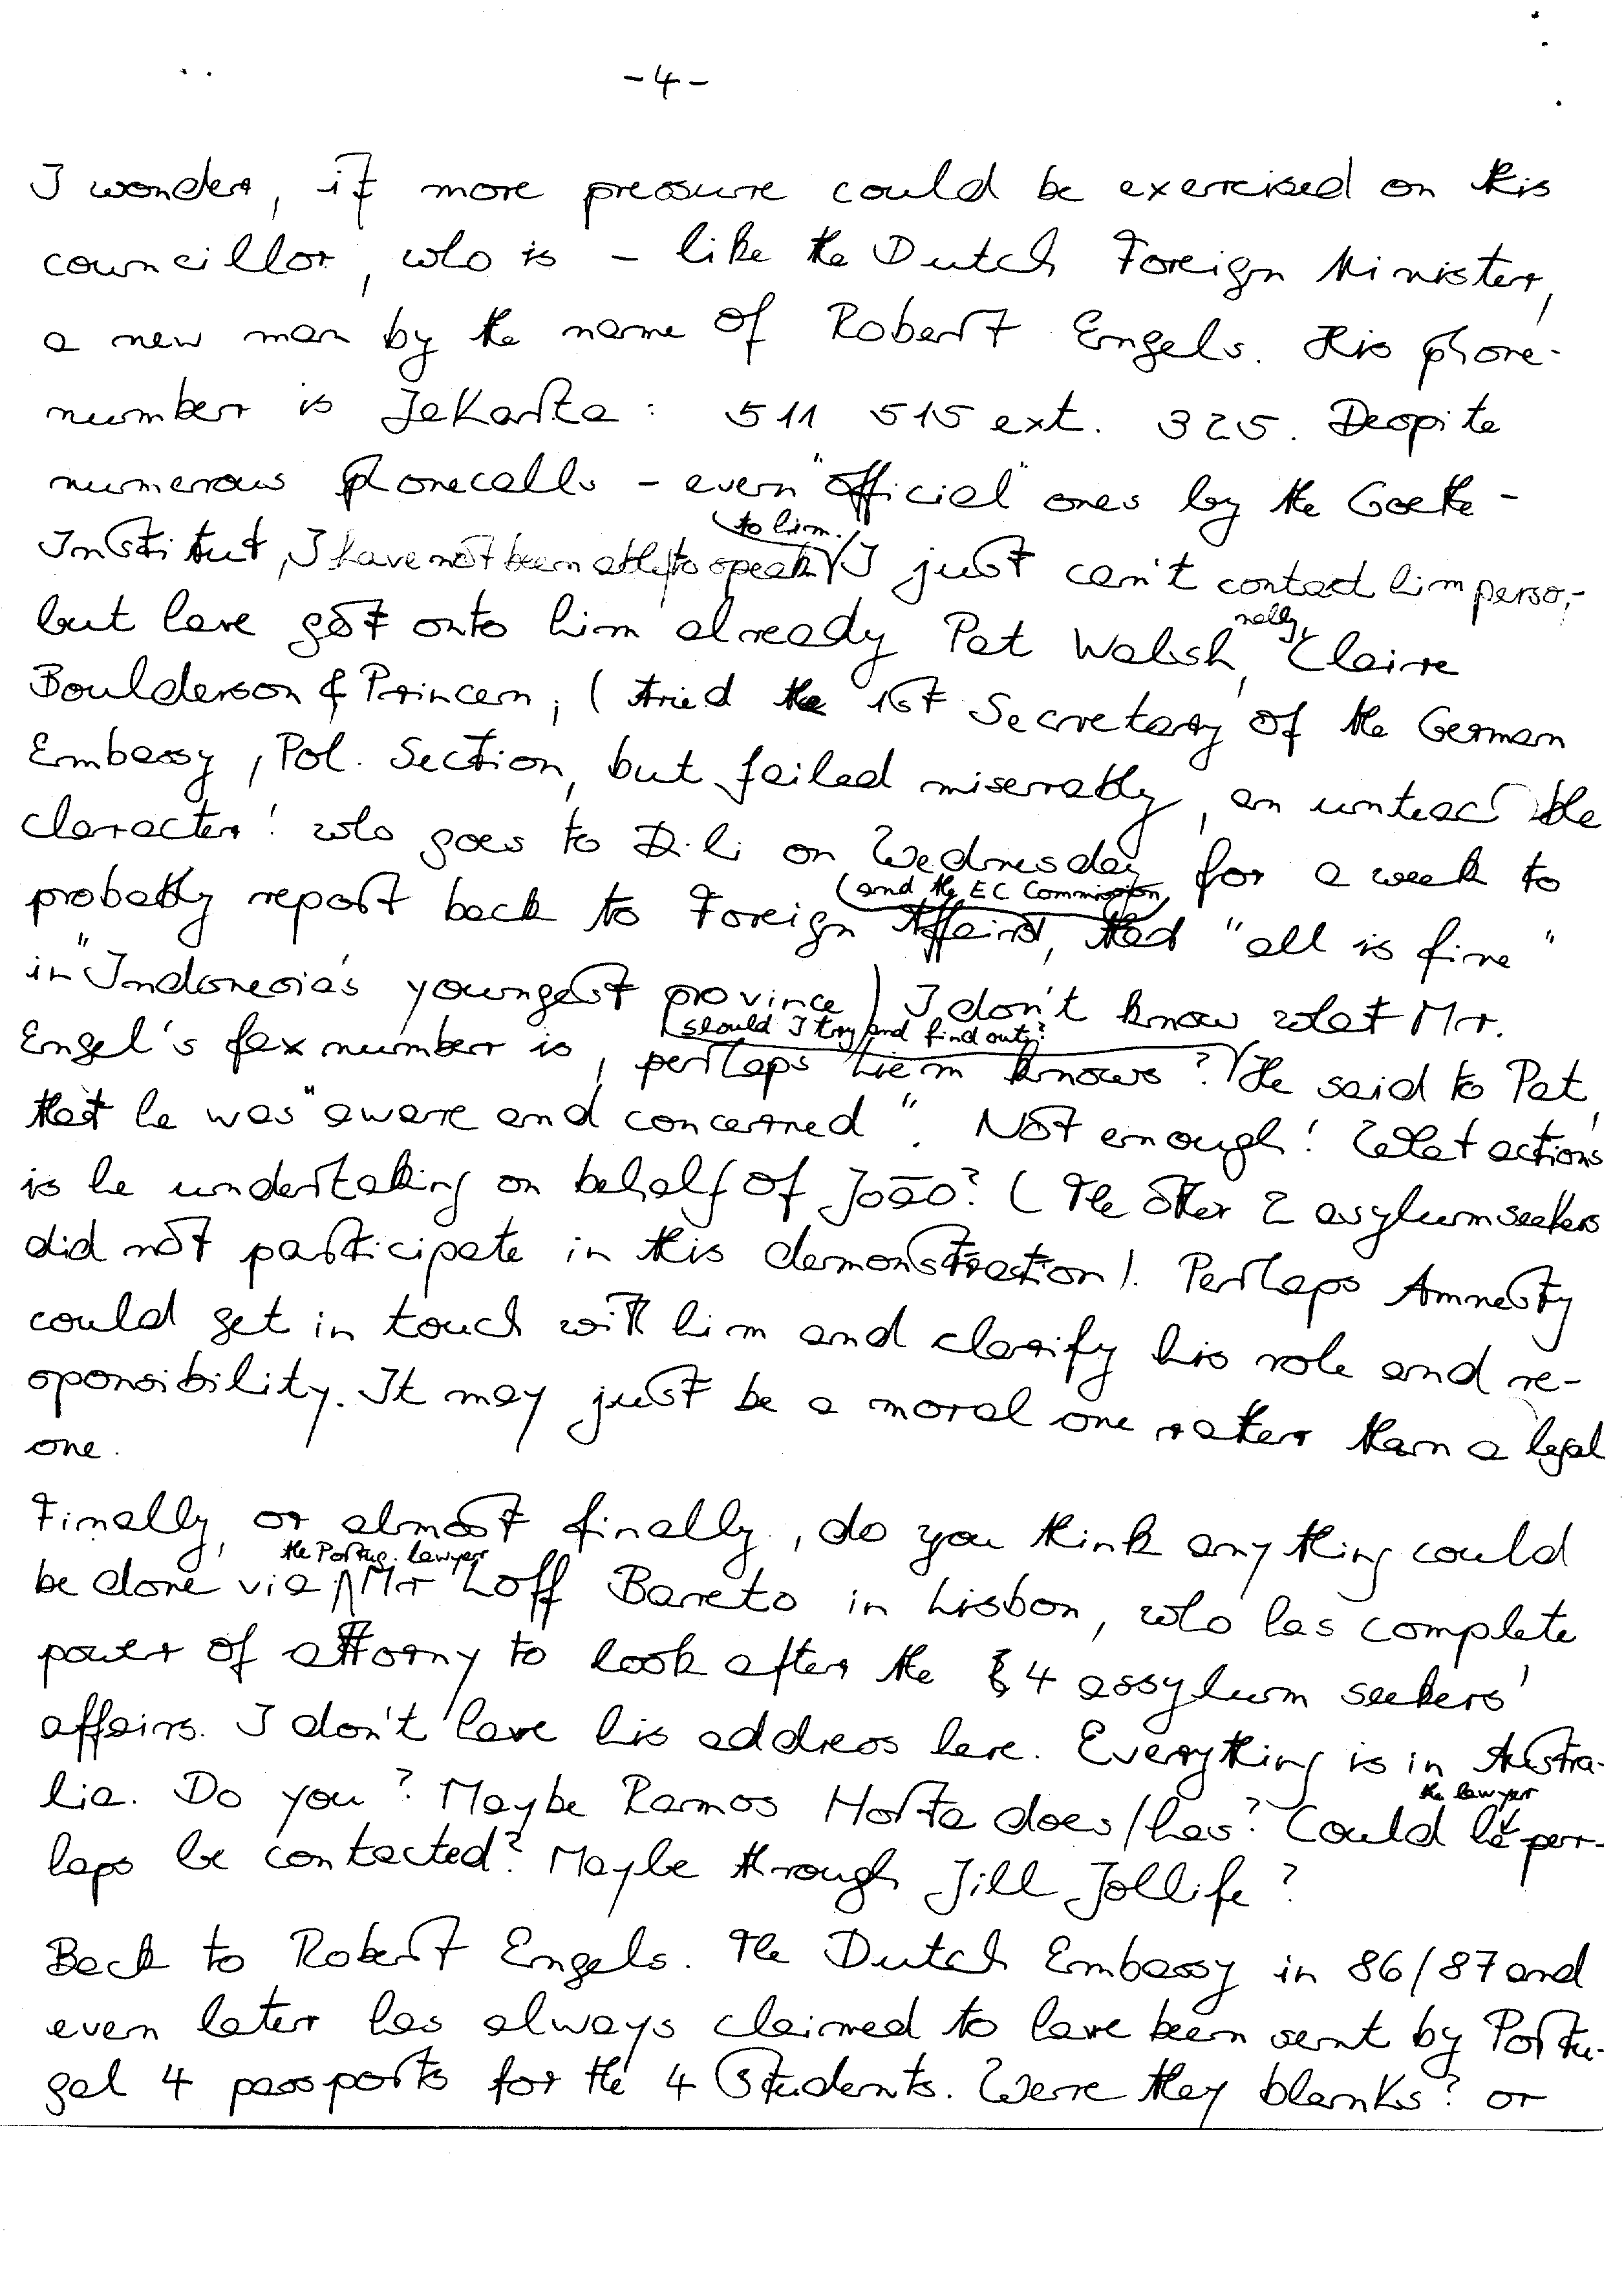 -4-
I wonder, if more pressure could be exercised on this
councillor, who is - like the Dutch Foreign Minister,
a new man by the name of Robert Engels. His phone-
number is Jakarta: 511 515 ext. 325. Despite
numerous phonecalls - even "official" ones by the Goethe-
to him.
Institut, I have not been able to speak I just can't contact him perso-
nally,
but have got onto him already Pat Walsh, Claire
Boulderson & Princen, (tried the 1st Secretary of the German
Embassy, Pol. Section, but failed miserrably, an unteachable
character! who goes to Dili on Wednesday for a week to
(and the EC Commission,
probably report back to Foreign Affairs, that "all is fine"
in "Indonesia's youngest province) I don't know what Mr.
should I try and find out?
Engel's fax number is, perhaps Liem knows? He said to Pat,
that he was "aware and concerned". Not enough! What actions
is he undertaking on behalf of João? (The other 2 asylumseekers
did not participate in this demonstration). Perhaps Amnesty
could get in touch with him and clarify his role and re-
sponsibility. It may just be a moral one rather than a legal
one.
Finally, or almost finally, do you think anything could
the Portug. lawyer
be done via Mr Loff Bareto in Lisbon, who has complete
power of attorny to look after the 4 assylum seekers'
affairs. I don't have his address here. Everything is in Austra-
the lawyer
lia. Do you? Maybe Ramos Horta does/has? Could he per-
haps be contacted? Maybe through Jill Jollife?
Back to Robert Engels. The Dutch Embassy in 86/87 and
even later has always claimed to have been sent by Portu-
gal 4 passports for the 4 Students. Were they blanks? or